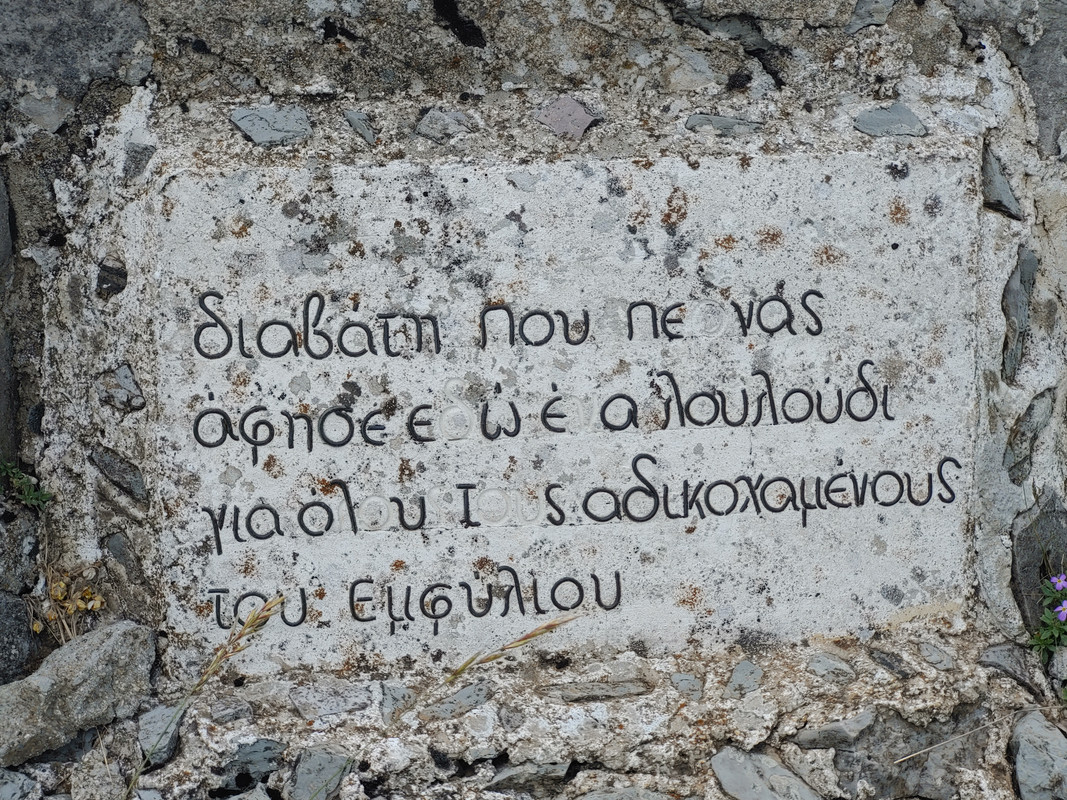 διαβάτη που περνάς
άφησε εδώ ένα λουλούδι
για όλους τους αδικοχαμένους
του Εμφύλιου